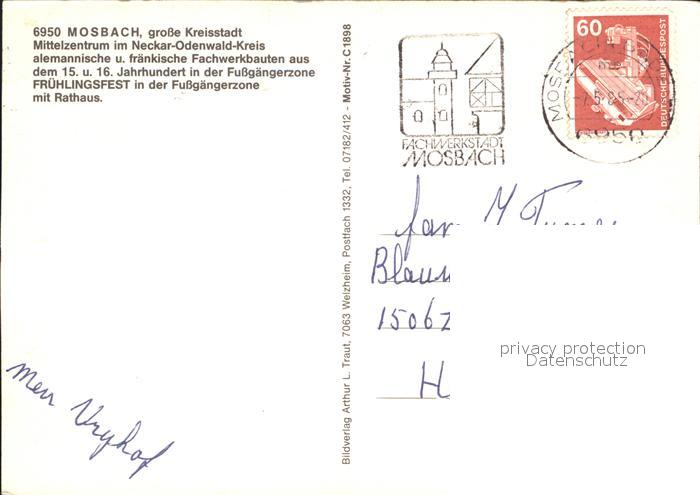 6950 MOSBACH, große Kreisstadt
Mittelzentrum im Neckar-Odenwald-Kreis
alemannische u. fränkische Fachwerkbauten aus
dem 15. u. 16. Jahrhundert in der Fußgängerzone
FRÜHLINGSFEST in der Fußgängerzone
mit Rathaus.
Bildverlag Arthur L. Traut, 7063 Welzheim, Postfach 1332, Tel. 07182/412 - Motiv-Nr. C1898
FACHWERKSTADT
MOSBACH
60
DEUTSCHE BUNDESPOST
6950
fam
Blau
1506z
H
privacy protection
Datenschutz